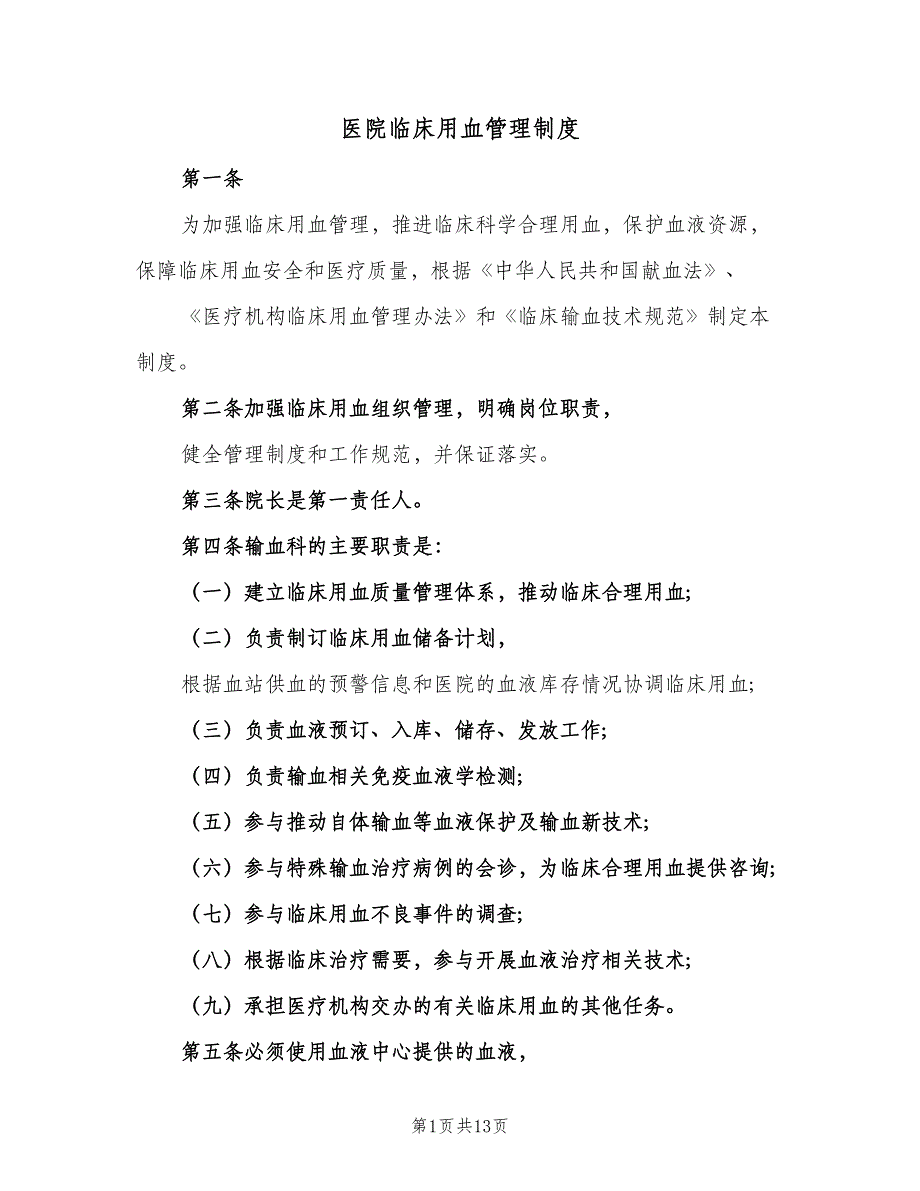 医院临床用血管理制度
第一条
为加强临床用血管理，推进临床科学合理用血，保护血液资源，
保障临床用血安全和医疗质量，根据《中华人民共和国献血法》、
《医疗机构临床用血管理办法》和《临床输血技术规范》制定本
制度。
第二条加强临床用血组织管理，明确岗位职责，
健全管理制度和工作规范，并保证落实。
第三条院长是第一责任人。
第四条输血科的主要职责是：
（一）建立临床用血质量管理体系，推动临床合理用血;
（二）负责制订临床用血储备计划，
根据血站供血的预警信息和医院的血液库存情况协调临床用血;
（三）负责血液预订、入库、储存、发放工作;
（四）负责输血相关免疫血液学检测;
（五）参与推动自体输血等血液保护及输血新技术;
（六）参与特殊输血治疗病例的会诊，为临床合理用血提供咨询;
（七）参与临床用血不良事件的调查;
（八）根据临床治疗需要，参与开展血液治疗相关技术;
（九）承担医疗机构交办的有关临床用血的其他任务。
第五条必须使用血液中心提供的血液，
第1页共13页